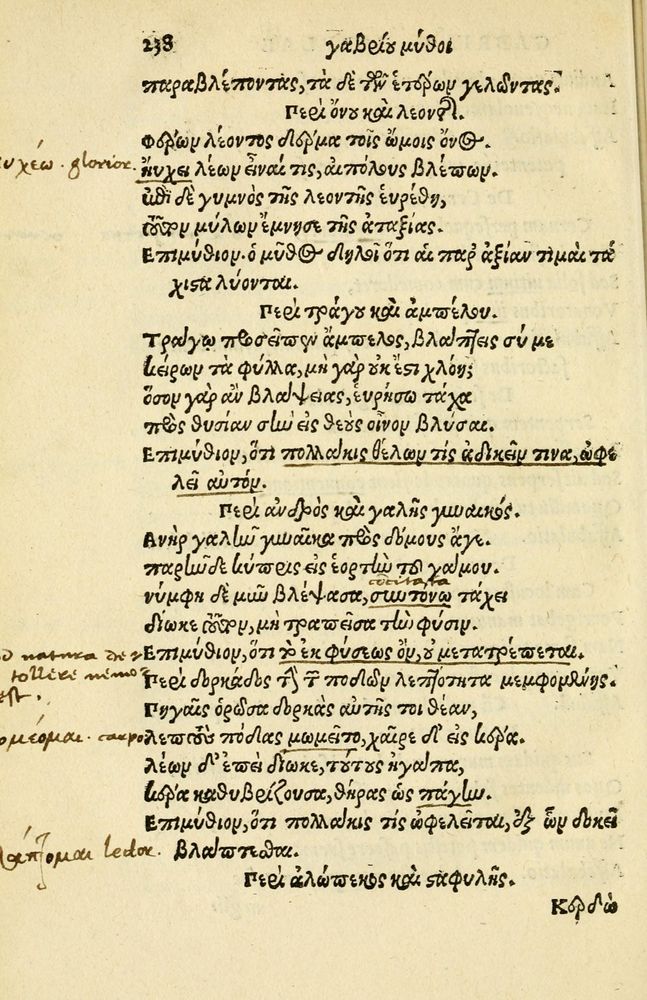 238 γαβρίου μύθοι
παραβλέποντας, τὰ δὲ τῶν ἑτέρων γελῶντας.
Περὶ ὄνου καὶ λέοντος.
Φέρων λέοντος δέρμα τοῖς ὤμοις ὄνος
ηὔχει λέων εἶναί τις, αἰπόλους βλέπων.
ἐπεὶ δὲ γυμνὸς τῆς λεοντῆς εὑρέθη,
μύλων ἔμνησε τῆς ἀταξίας.
Επιμύθιον. ὁ μῦθος δηλοῖ ὅτι αἱ παρ' ἀξίαν τιμαὶ τά
χιστα λύονται.
Περὶ τράγου καὶ ἀμπέλου.
Τράγῳ προσεῖπεν ἄμπελος, βλάπτεις σύ με
κείρων τὰ φύλλα, μὴ γὰρ οὐκ ἔστι χλόη;
ὅσον γὰρ ἂν βλάψειας, εὑρήσω τάχα
πρὸς θυσίαν σὴν εἰς θεοὺς οἶνον βλύσαι.
Επιμύθιον, ὅτι πολλάκις θέλων τίς ἀδικεῖν τινα, ὠφε
λεῖ αὐτόν.
Περὶ ἀνδρὸς καὶ γαλῆς γυναικός.
Ανὴρ γαλῆν γυναῖκα πρὸς δόμους ἄγε.
παρῆν δὲ κύπρις εἰς ἑορτὴν τοῦ γάμου.
νύμφη δὲ μῦν βλέψασα, συντόνῳ τάχει
δίωκε τοῦτον, μὴ τραπεῖσα τὴν φύσιν.
Επιμύθιον, ὅτι τὸ ἐκ φύσεως ὂν, οὐ μετατρέπεται.
Περὶ δορκάδος τὴν τῶν ποδῶν λεπτότητα μεμφομένης.
Πηγαῖς ὁρῶσα δορκὰς αὐτῆς που θέαν,
λεπτοὺς πόδας μωμεῖτο, χαῖρε δ' εἰς κέρα.
λέων δ' ἐπεὶ δίωκε, τούτους ἠγάπα,
κέρα καθυβρίζουσα, θήρας ὡς πάγην.
Επιμύθιον, ὅτι πολλάκις τίς ὠφελεῖται, ἐξ ὧν δοκεῖ
βλάπτεσθαι.
Περὶ ἀλώπεκος καὶ σταφυλῆς.
Κερδὼ
glorior.
natura
tollere nemo
est.
ledor.